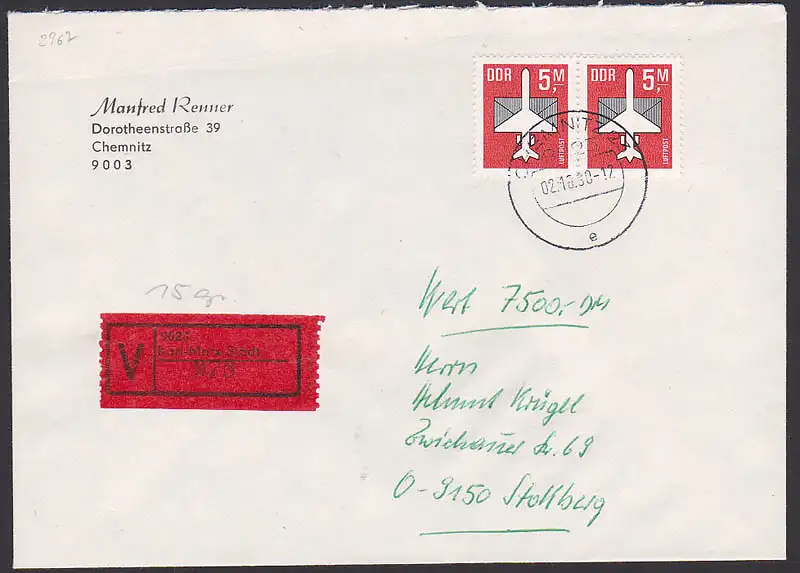 2967
Manfred Renner
Dorotheenstraße 39
Chemnitz
9003
DDR 5,M
LUFTPOST
DDR 5,M
LUFTPOST
CHEMNITZ
e
15 gr.
V
Karl-Marx-Stadt
Wert 7500,- DM
Herrn
Helmut Krügel
Zwickauer Str. 69
O-9150 Stollberg